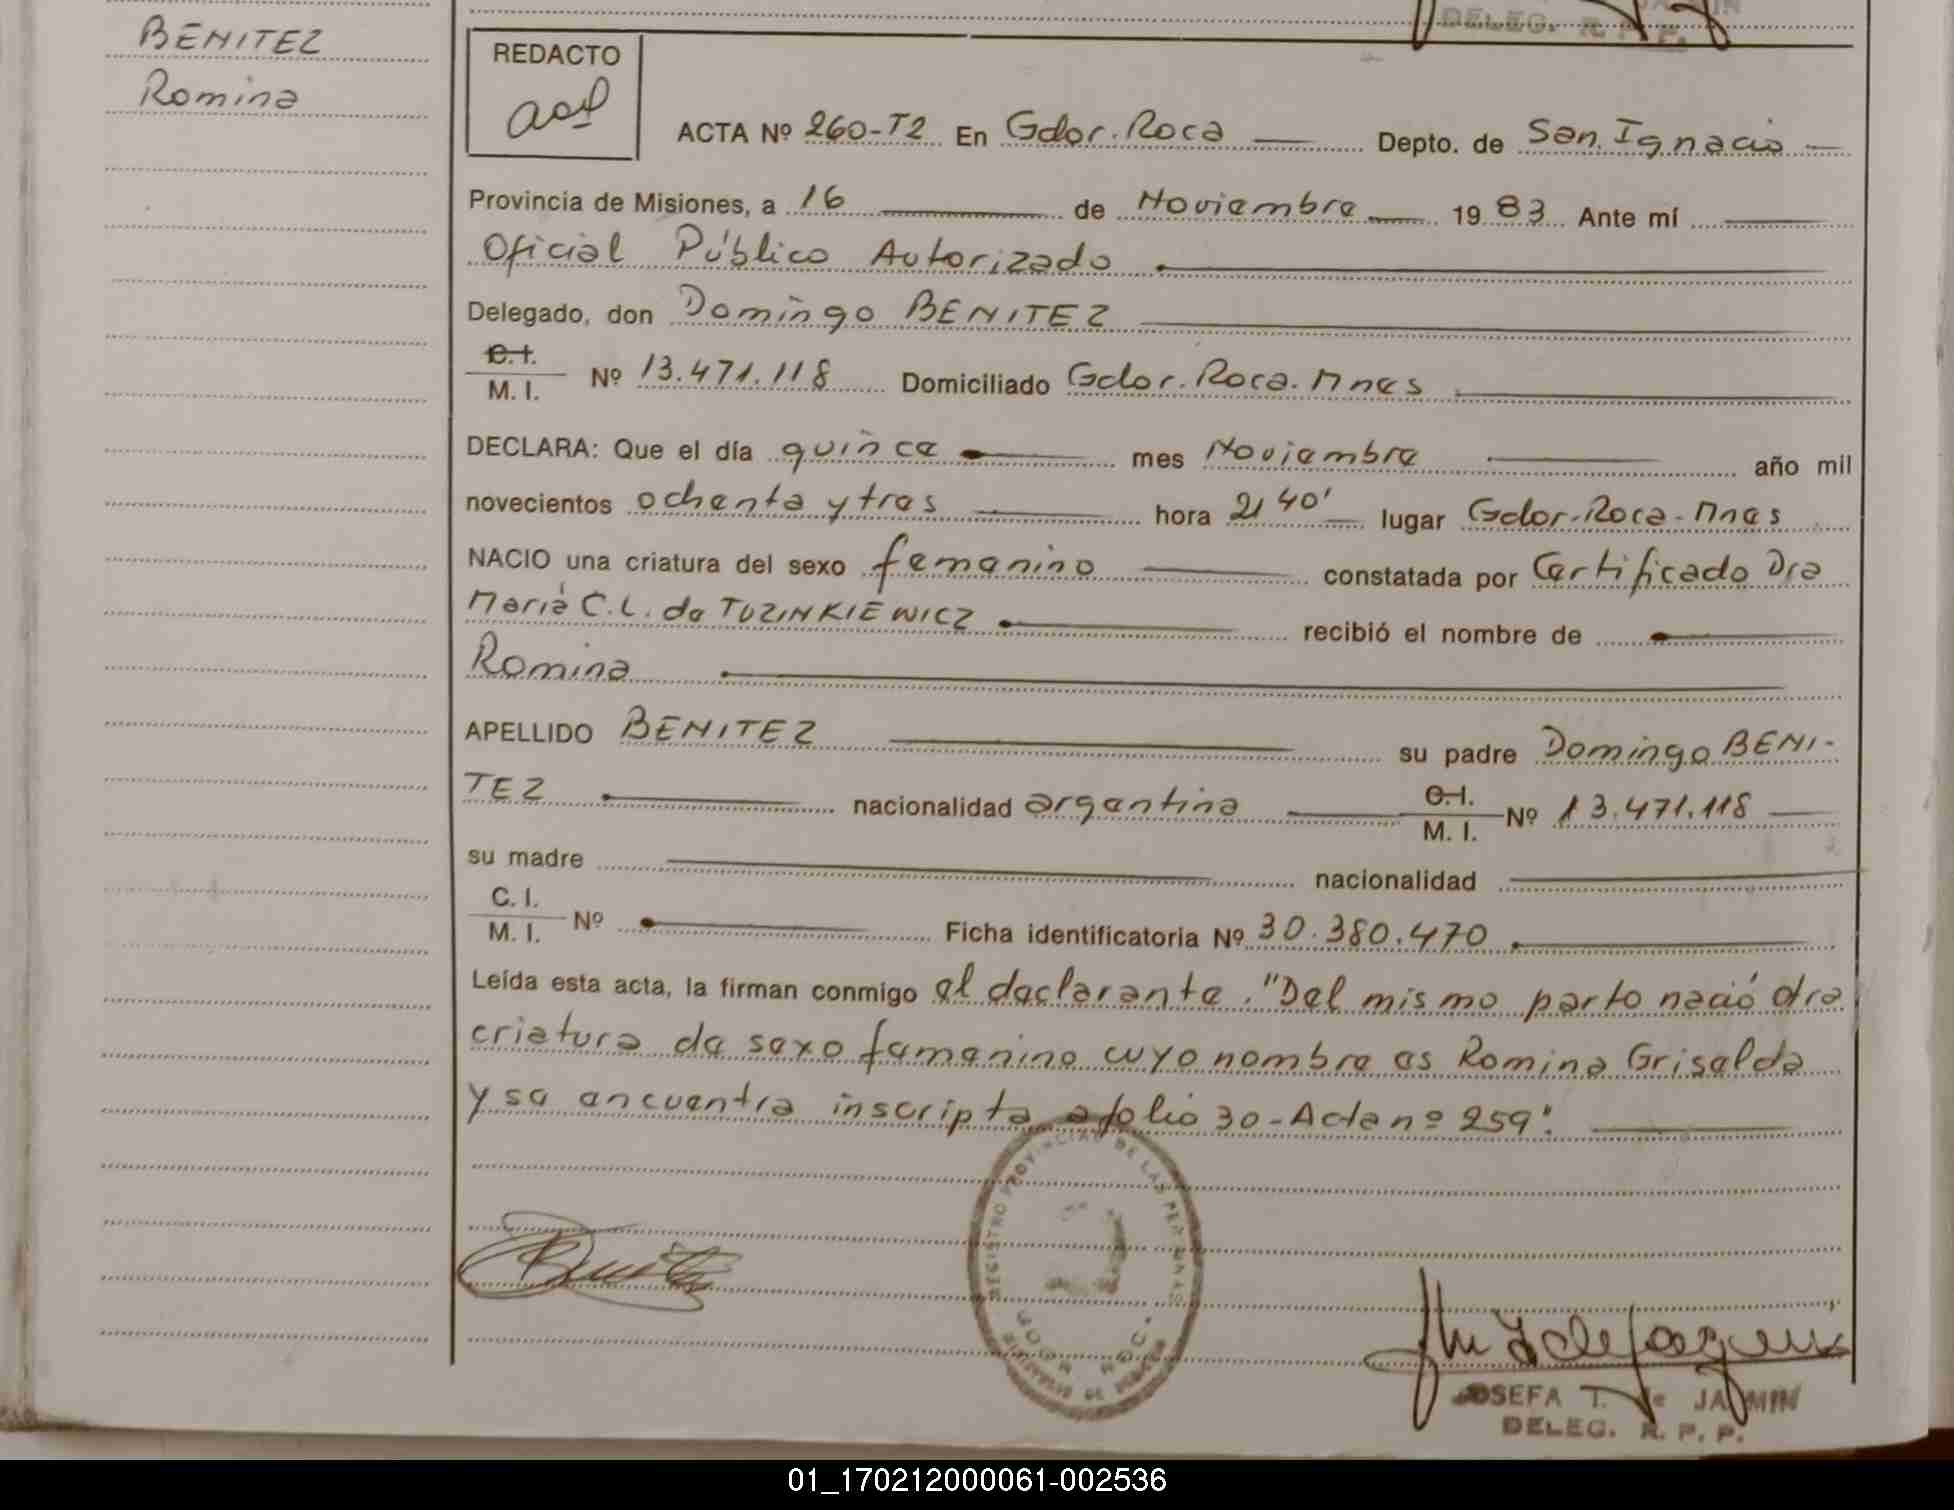 BENITEZ
Romina
DELEG. R. P. P.
REDACTO
ACTA Nº 260-T2 En Gdor. Roca Depto. de San Ignacio
Provincia de Misiones, a 16 de Noviembre 1983 Ante mí
Oficial Público Autorizado
Delegado, don Domingo BENITEZ
C.I.
M. I. Nº 13.471.118 Domiciliado Gdor. Roca. Mnes
DECLARA: Que el día quince mes Noviembre año mil
novecientos ochenta y tres hora 21 40' lugar Gdor. Roca - Mnes
NACIO una criatura del sexo femenino constatada por Certificado Dra
María C. L. de TUZINKIEWICZ recibió el nombre de
Romina
APELLIDO BENITEZ su padre Domingo BENI-
TEZ nacionalidad argentina C.I. M. I. Nº 13.471.118
su madre nacionalidad
C. I.
M. I. Nº Ficha identificatoria Nº 30.380.470
Leída esta acta, la firman conmigo el declarante. "Del mismo parto nació otra
criatura de sexo femenino cuyo nombre es Romina Griselda
y se encuentra inscripta a folio 30 - Acta nº 259".
REGISTRO PROVINCIAL DE LAS PERSONAS
Benitez
JOSEFA T. de JAQMIN
DELEG. R. P. P.
01_170212000061-002536